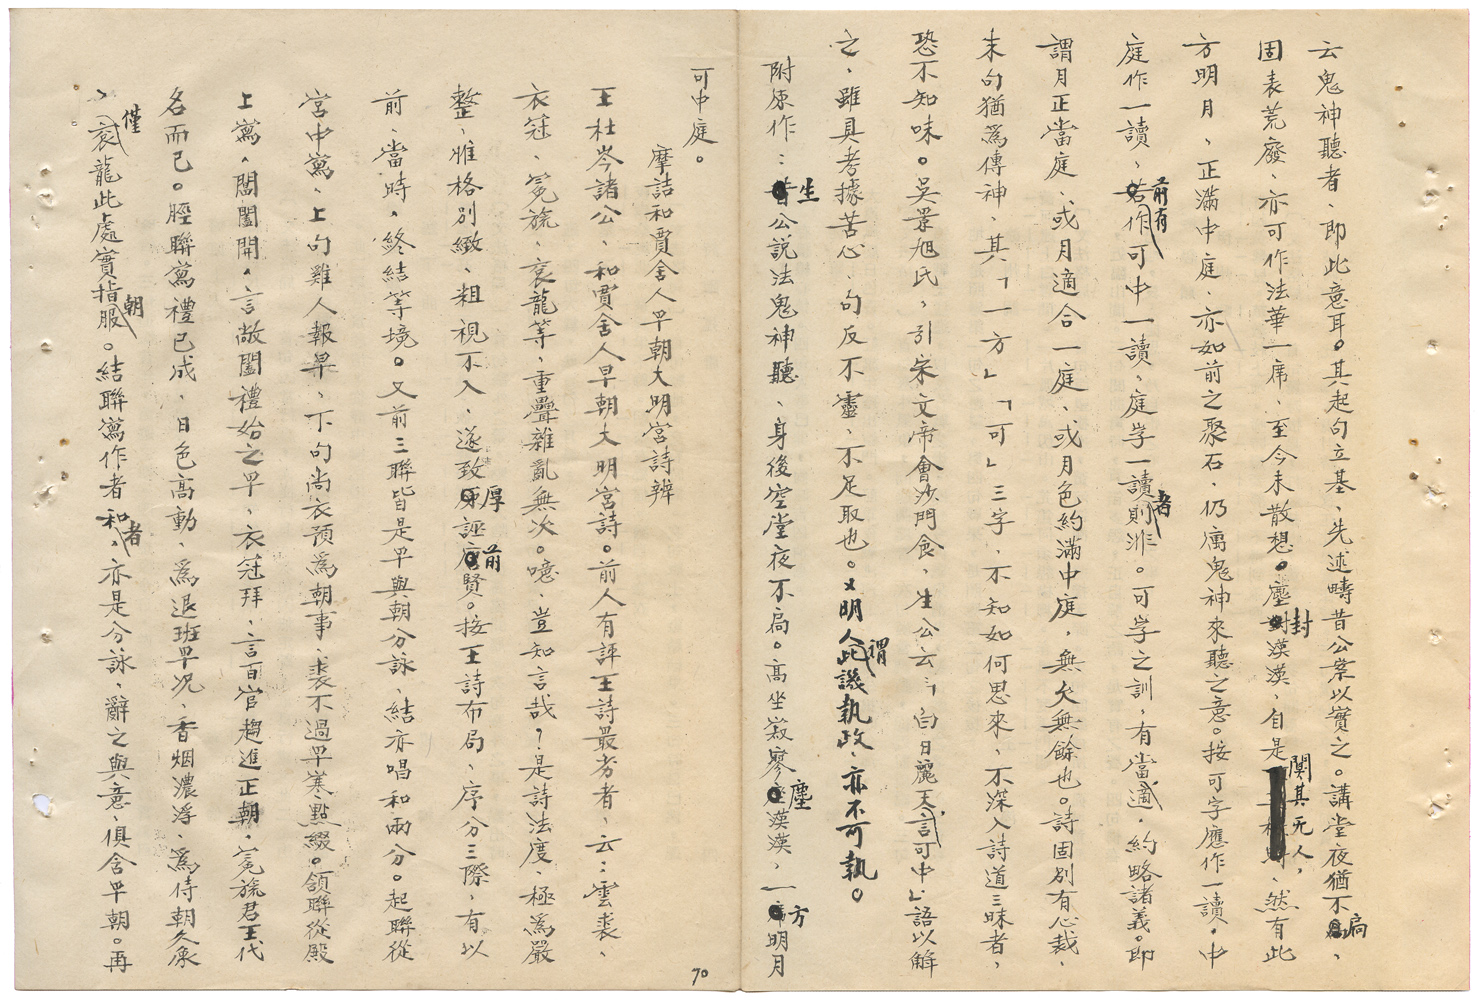 云鬼神聽者、即此意耳。其起句立基、先述疇昔公案以實之。講堂夜猶不扃、
固表荒廢、亦可作法華一席、至今未散想。塵封漠漠、自是闃其无人，然有此
方明月、正滿中庭、亦如前之聚石、仍寓鬼神來聽之意。按可字應作一讀、中
庭作一讀、前有作可中一讀，庭字一讀者則非。可字之訓，有當適、約略諸義。即
謂月正當庭、或月適合一庭、或月色約滿中庭，無欠無餘也。詩固別有心裁、
末句猶爲傳神、其「一方」「可」三字、不知如何思來、不深入詩道三昧者，
恐不知味。吳景旭氏，引宋文帝會沙門食，生公云：「白日麗天、言可中」語以解
之、雖具考據苦心、句反不靈、不足取也。又明人謂此譏執政、亦不可執。
附原作：生公説法鬼神聽、身後空堂夜不扃。高坐寂寥塵漠漠，一方明月
可中庭。
摩詰和賈舍人早朝大明宮詩辨
王杜岑諸公、和賈舍人早朝大明宮詩。前人有評王詩最劣者，云：雲裘、
衣冠、冕旒、袞龍等，重疊雜亂無次。噫，豈知言哉？是詩法度、極爲嚴
整、惟格別緻、粗視不入、遂致厚誣前賢。按王詩布局、序分三際，有以
前、當時、終結等境。又前三聯皆是早與朝分詠、結亦唱和兩分。起聯從
宮中寫、上句雞人報早、下句尚衣預爲朝事、裘不過早寒點綴。頷聯從殿
上寫、閶闔開，言敞闔禮始之早、衣冠拜、言百官趨進正朝、冕旒君王代
名而已。脛聯寫禮已成、日色高動、爲退班早况、香烟濃浮、爲侍朝久象
僅袞龍此處實指朝服。結聯寫作者和者、亦是分詠、辭之與意、俱含早朝。再
70